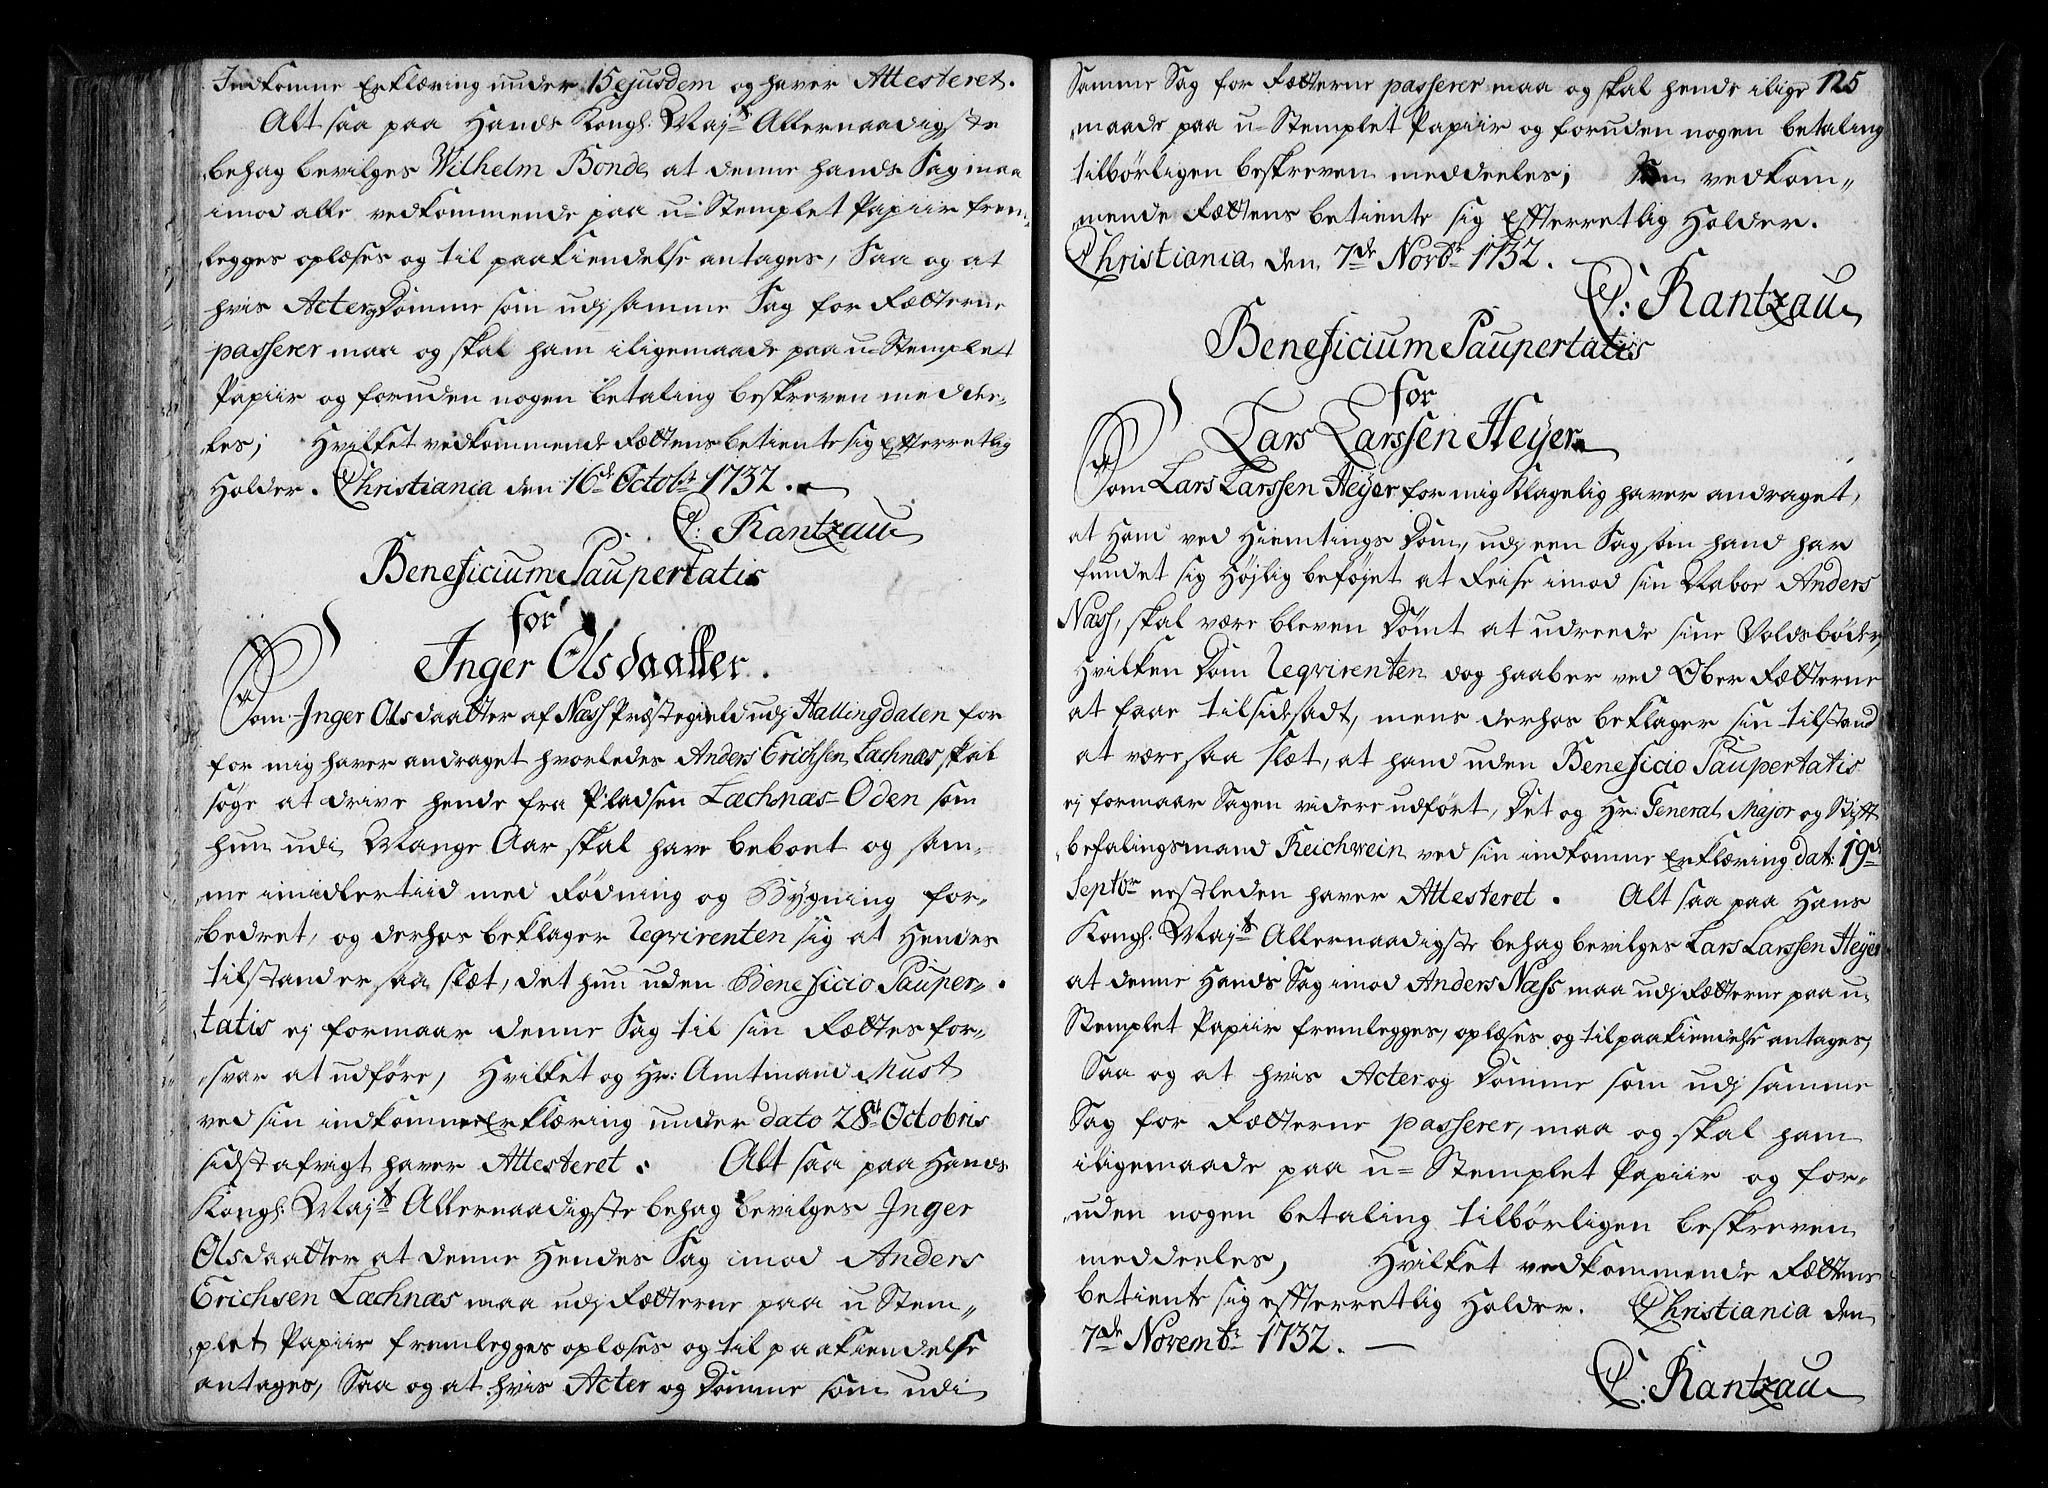 Indkomne Erklæring under 15 ejusdem og haver Attesteret.
Alt saa paa Hands Kongl: Mayts Allernaadigste
behag bevilges Wilhelm Bonde, at denne hands Sag maa
imod alle vedkommende paa u-Stemplet Papiir frem-
legges oplæses og til paakiendelse antages, Saa og at
hvis Acter og Domme som udj samme Sag for Rætterne
passerer maa og skal ham iligemaade paa u-Stemplet
Papiir og foruden nogen betaling beskreven meddee-
les; Hvilket vedkommende Rættens betiente sig Efterretlig
Holder. Christiania den 16de Octobr 1732.
C: Rantzau
Beneficium Paupertatis
for
Inger Olsdaatter.
Som Inger Olsdaatter af Næss Præstegield udj Hallingdalen for
for mig haver andraget hvorledes Anders Erichsen Læchnæs skal
søge at drive hende fra Pladsen Læchnæs-Oden som
hun udi Mange Aar skal have beboet og sam-
me imidlertiid med Rødning og Bygning for-
bedret, og derhos beklager Reqvirenten sig at Hendes
tilstand er saa slæt, det hun uden Beneficio Pauper-
tatis ej formaar denne Sag til sin Rættes for-
svar at udføre, Hvilket og Hr: Amtmand Must
ved sin indkomne Erklæring under dato 28de Octobris
sidst afvigt haver Attesteret. Alt saa paa Hands
Kongl: Mayts Allernaadigste behag bevilges Inger
Olsdaatter at denne Hendes Sag imod Anders
Erichsen Læchnæs maa udj Rætterne paa u Stem-
plet Papiir fremlegges oplæses og til paakiendelse
antages, Saa og at hvis Acter og Domme som udi
Samme Sag for Rætterne passerer maa og skal hende ilige 125
maade paa u-Stemplet Papiir og foruden nogen betaling
tilbørligen beskreven meddeeles; vedkom-
mende Rættens betiente sig Efterretlig Holder.
Christiania den 7de Novbr 1732.
C: Rantzau
Beneficium Paupertatis
for
Lars Larssen Heyer
Som Lars Larssen Heyer for mig Klagelig haver andraget,
at Hand ved Hiemtings Dom, udj een Sag som hand har
fundet sig Højlig beføjet at Reise imod sin Nabo Anders
Næss, skal være bleven Dømt at udreede sine Voldsbøder,
Hvilken Dom Reqvirenten dog haaber ved Ober Rætterne
at faae tilsidesadt, mens derhos beklager sin tilstand
at være saa slæt, at hand uden Beneficio Paupertatis
ej formaar Sagen videre udført, Det og Hr: General Major og Stift
befalingsmand Reichwein ved sin indkomne Erklæring dat: 19de
Septbr nestleden haver Attesteret. Alt saa paa Hans
Kongl: Mayts Allernaadigste behag bevilges Lars Larssen Heyer
at denne Hands Sag imod Anders Næss maa udj Rætterne paa u-
Stemplet Papiir fremlegges, oplæses og til paakiendelse antages,
Saa og at hvis Acter og Domme som udj samme
Sag for Rætterne passerer, maa og skal ham
iligemaade paa u-Stemplet Papiir og for-
uden nogen betaling tilbørligen beskreven
meddeeles, Hvilket vedkommende Rættens
betiente sig efterretlig Holder. Christiania den
7de Novembr 1732.
C: Rantzau